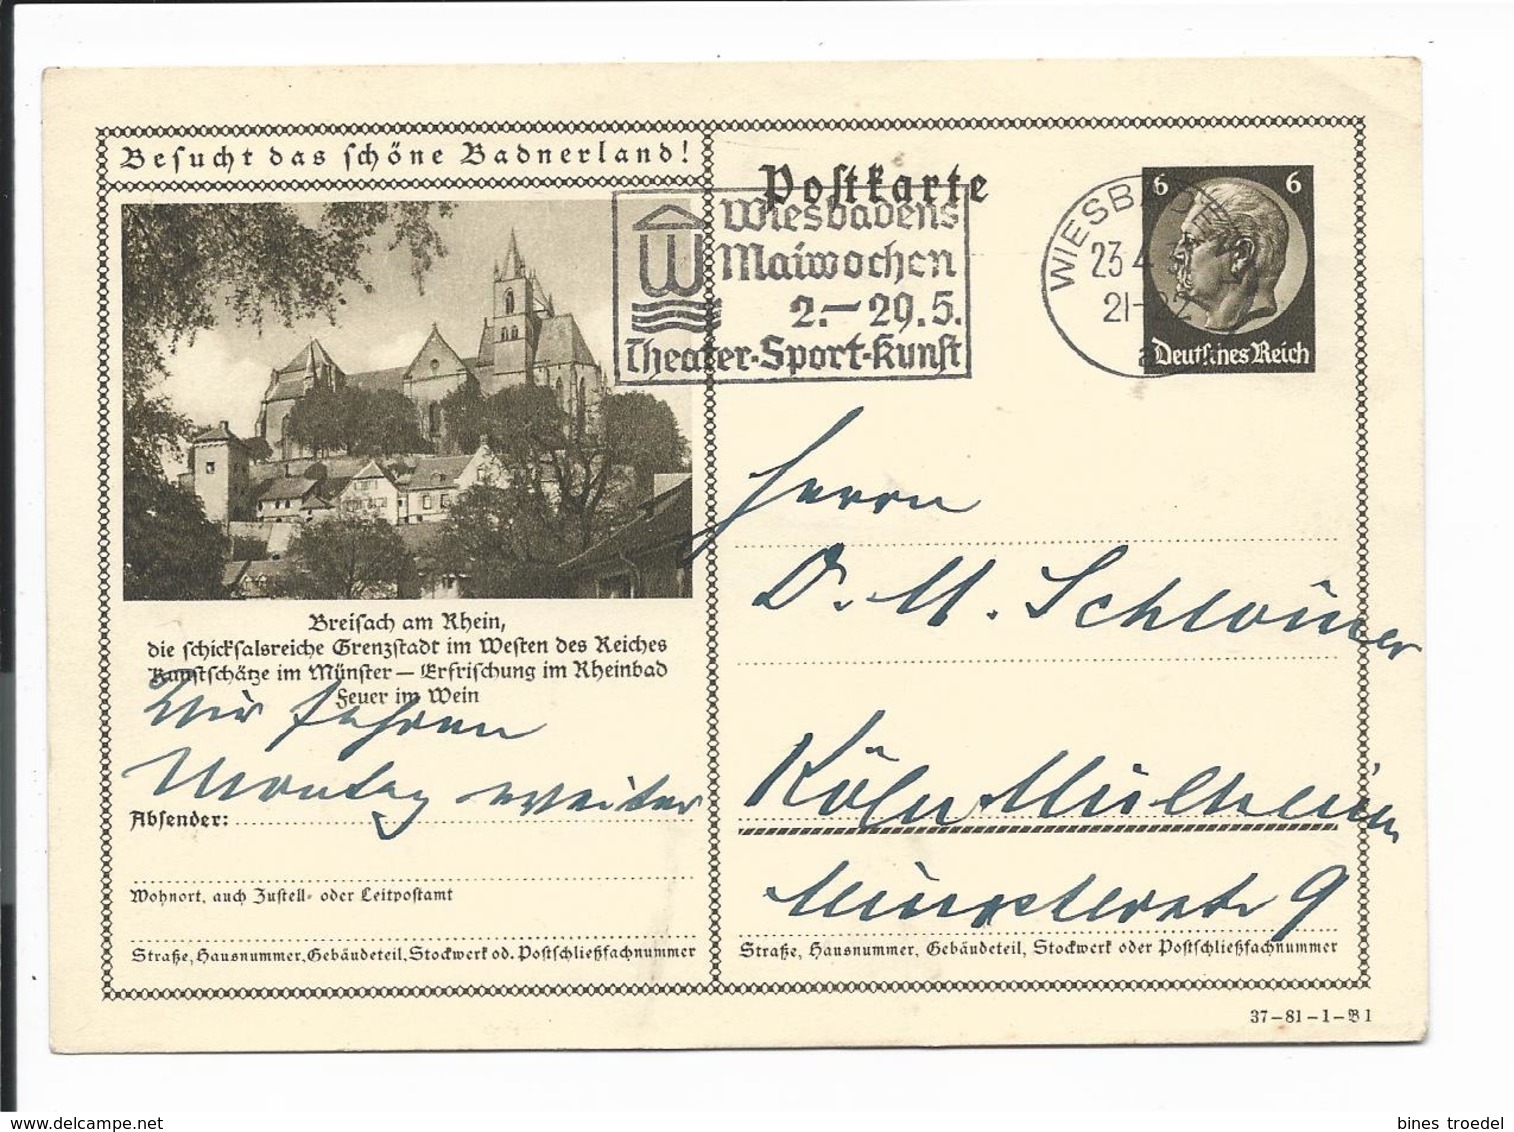 Besucht das schöne Badnerland!
Postkarte
Wiesbadens
Maiwochen
2.–29.5.
Theater-Sport-Kunst
WIESBADEN
23.4.
21-22
a
6 6
Deutsches Reich
Breisach am Rhein,
die schicksalsreiche Grenzstadt im Westen des Reiches
Kunstschätze im Münster — Erfrischung im Rheinbad
Feuer im Wein
Wir fahren
Montag weiter
Absender:
Wohnort, auch Zustell- oder Leitpostamt
Straße, Hausnummer, Gebäudeteil, Stockwerk od. Postschließfachnummer
Herrn
D. M.
Köln Mülheim
9
Straße, Hausnummer, Gebäudeteil, Stockwerk oder Postschließfachnummer
37–81–1–B1
bines troedel